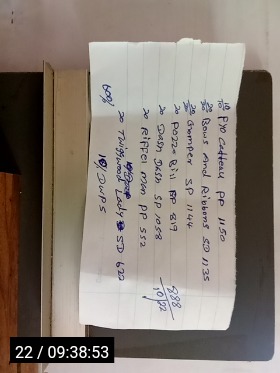 10/10 PYO Cadeau PP 1150
20/20 Bows And Ribbons SD 1135
20/20 Gamper SP 1144
20 Pozzo Bill PP 819
20 Dash Dash SP 1058
20 Riffel man PP 552
20 Thigswood Lady SD 620
DWPS
888
10/22
22 / 09:38:53